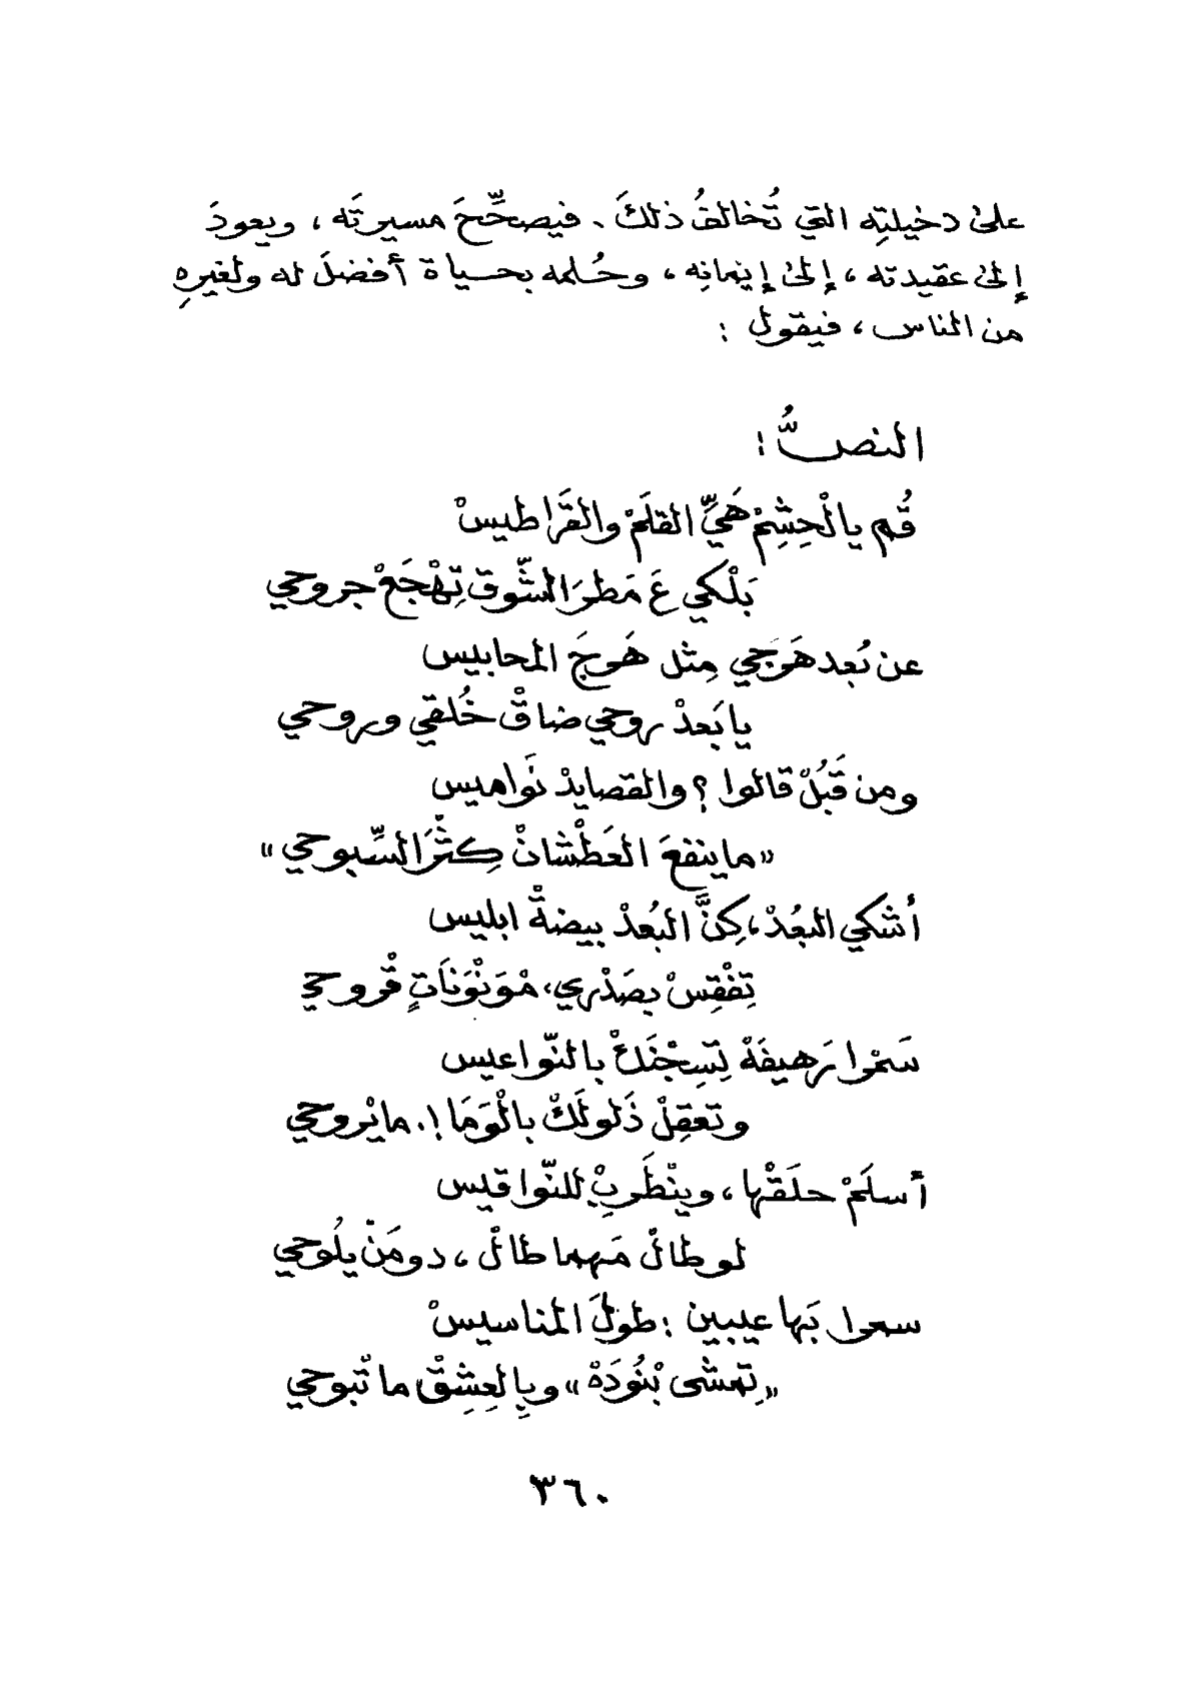 على دخيلتِه التي تُخالفُ ذلكَ . فيصحِّحَ مسيرتَه ، ويعودَ
إلى عقيدته ، إلى إيمانِه ، وحُلمه بحسياة أفضلَ له ولغيرِهِ
من الناس ، فيقول :
النصُّ :
قُم يا لْحِشِمْ هَيِّ القلَمْ والقَراطيسْ
بَلْكي عَ مَطرَ الشّوق تِهْجَعْ جروحي
عن بُعِد هَوجي مِثل هَوجَ المحابيس
يا بَعدْ روحي ضاقْ خُلقي وروحي
ومن قَبُلْ قالوا ؟ والقصايدْ نَواميس
«ما ينفعَ العَطْشانْ كِثْرَ السِّبوحي»
أشكي البعُدْ ، كِنَّ البُعدْ بيضةْ ابليس
تِفْقِسْ بصَدْري ، مْوَنْوَناتٍ قْروحي
سَمْرا رَهيفَهْ تِسِجْنَكْ بالنّواعيس
وتعقِلْ ذَلولَكْ بالْوَمَا !. ما يْروحي
أسلَمْ حلَقْها ، وينْطَرِبْ للنّواقيس
لو طالْ مَهما طالْ ، دومَنّ يلُوحي
سمرا بَها عيبين : طولَ المناسيسْ
«تِمشى بْنُودَهْ» وبِالعِشِقْ ما تْبوحي
٣٦٠